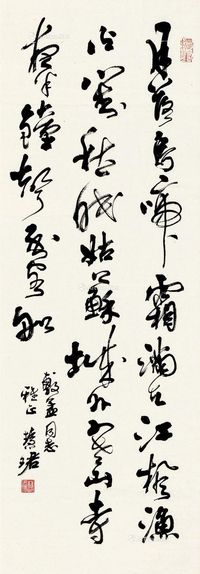 月落烏啼霜滿天江楓漁
火對愁眠姑蘇城外寒山寺
夜半鐘聲到客船
同志
雅正